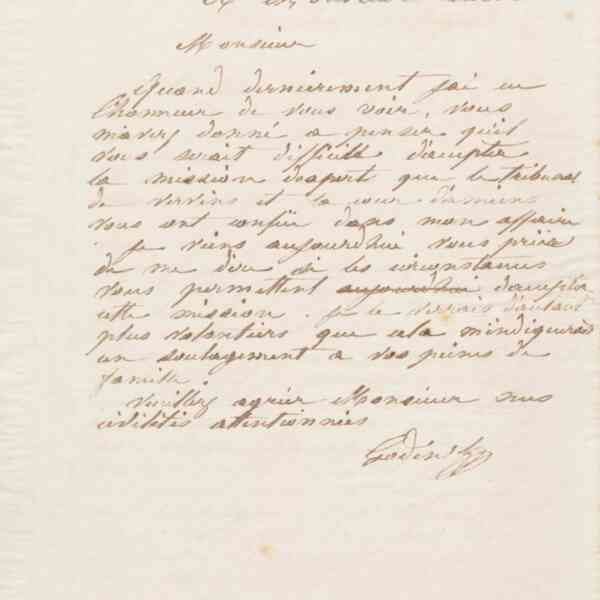 Monsieur
Quand dernièrement j'ai eu
l'honneur de vous voir, vous
mavez donné a penser qu'il
vous serait difficile d'accepter
la mission d'expert que le tribunal
de vervins et la cour d'amiens
vous ont confiée dans mon affaire
Je viens aujourd'hui vous prier
de me dire si les circonstances
vous permettent aujourd'hui d'accepter
cette mission. Je le verrais d'autant
plus volontiers que cela m'indiquerait
un soulagement a vos peines de
famille
Veuillez agréer Monsieur mes
civilités attentionnées